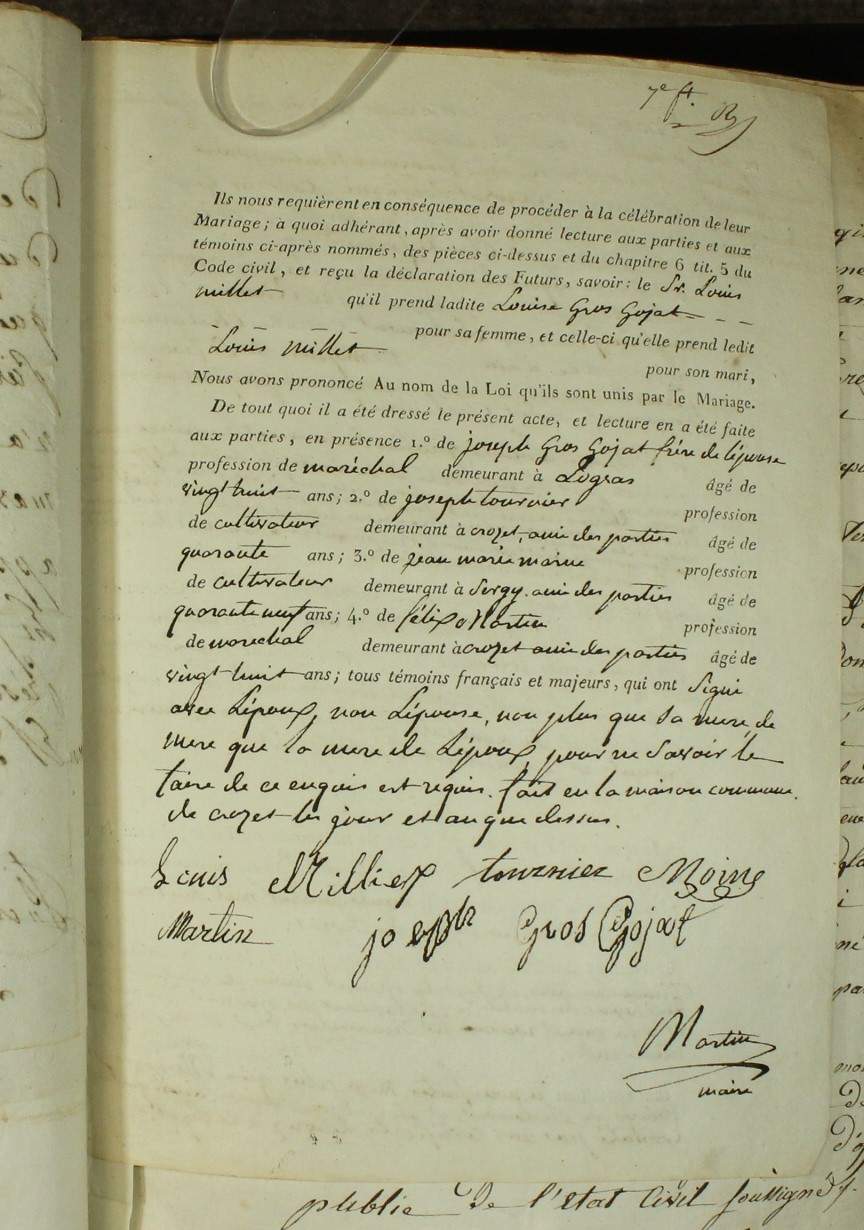 7e ft.
Ils nous requièrent en conséquence de procéder à la célébration de leur
Mariage; à quoi adhérant, après avoir donné lecture aux parties et aux
témoins ci-après nommés, des pièces ci-dessus et du chapitre 6 tit. 5 du
Code civil, et reçu la déclaration des Futurs, savoir: le Sr. Louis
millet qu'il prend ladite Louise Gros Gojat
pour sa femme, et celle-ci qu'elle prend ledit
Louis millet pour son mari,
Nous avons prononcé Au nom de la Loi qu'ils sont unis par le Mariage.
De tout quoi il a été dressé le présent acte, et lecture en a été faite
aux parties, en présence 1.º de joseph Gros Gojat frère de lépouse
profession de maréchal demeurant à Logras âgé de
vingt huit ans; 2.º de joseph tournier profession
de cultivateur demeurant à crozet, ami des parties âgé de
quarante ans; 3.º de jean marie moine profession
de cultivateur demeurant à Sergy. ami des parties âgé de
quarante neuf ans; 4.º de félix Martin profession
de marechal demeurant à crozet ami des parties âgé de
vingt huit ans; tous témoins français et majeurs, qui ont Signé
avec Lépoux, non Lépouse, non plus que Sa mere de
meme que la mere de Lépoux, pour ne Savoir le
faire de ce enquis est requis. fait en la maison commune
de crozet les jour et an que dessus.
Louis Milliex tournier Moine
Martin joseph Gros Gojat
Martin
maire
public de l'état Civil soussigné